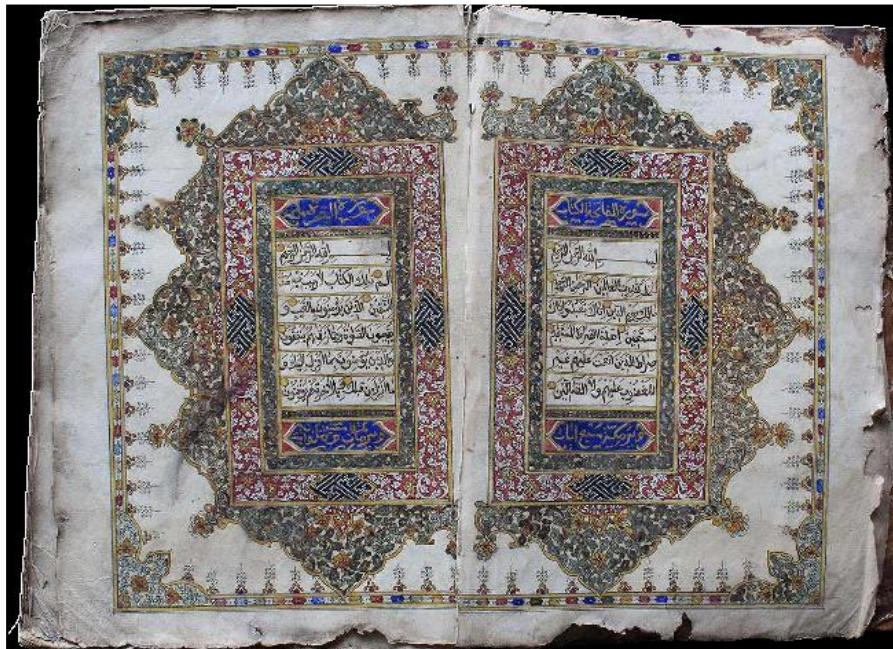 سورة الفاتحة الكتاب
بسم الله الرحمن الرحيم
الحمد لله رب العالمين الرحمن الرحيم
مالك يوم الدين اياك نعبد واياك
نستعين اهدنا الصراط المستقيم
صراط الذين انعمت عليهم غير
المغضوب عليهم ولا الضالين
مكية سبع ايات
سورة البقرة
بسم الله الرحمن الرحيم
الم ذلك الكتاب لا ريب فيه هدى
للمتقين الذين يؤمنون بالغيب و
يقيمون الصلوة ومما رزقناهم ينفقون
والذين يؤمنون بما انزل اليك و
ما انزل من قبلك وبالاخرة هم يوقنون